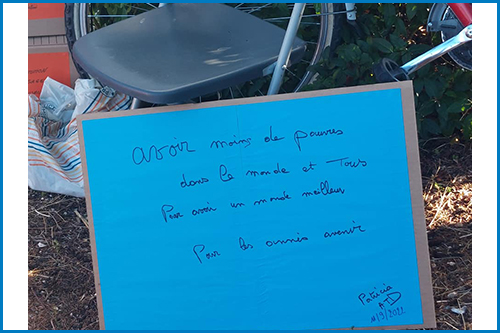 avoir moins de pauvres
dans le monde et Tous
Pour avoir un monde meilleur
Pour les années avenir
Patricia
ATD
9/2021